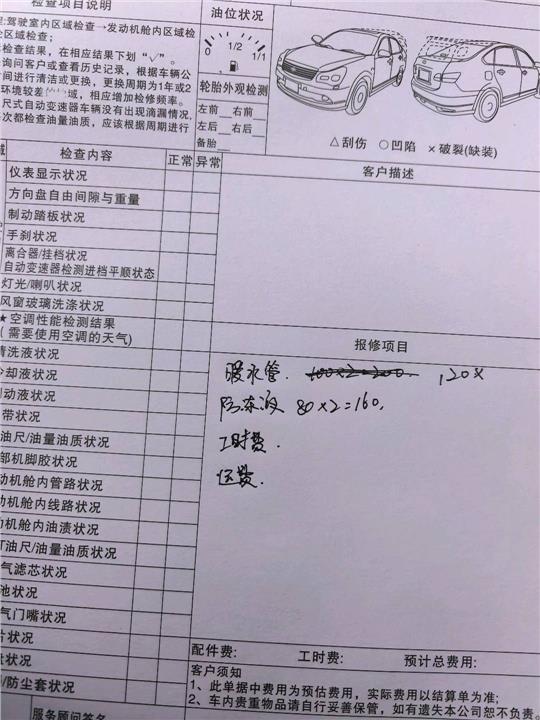 检查项目说明
:驾驶室内区域检查→发动机舱内区域检
区域检查;
检查结果，在相应结果下划“√”。
询问客户或查看历史记录，根据车辆公
间进行清洁或更换，更换周期为1年或2
环境较差 域，相应增加检修频率。
尺式自动变速器车辆没有出现滴漏情况,
次都检查油量油质，应该根据周期进行
油位状况
0 1/2 1/1
轮胎外观检测
左前 右前
左后 右后
备胎
△刮伤 ○凹陷 ×破裂(缺装)
检查内容 正常 异常
客户描述
仪表显示状况
方向盘自由间隙与重量
制动踏板状况
手刹状况
离合器/挂档状况
自动变速器检测进档平顺状态
灯光/喇叭状况
风窗玻璃洗涤状况
★空调性能检测结果
(需要使用空调的天气)
清洗液状况
冷却液状况
制动液状况
带状况
油尺/油量油质状况
部机脚胶状况
动机舱内管路状况
动机舱内线路状况
动机舱内油渍状况
油尺/油量油质状况
气滤芯状况
池状况
气门嘴状况
片状况
状况
/防尘套状况
服务顾问签名
报修项目
暖水管. 100×2=200. 120×
防冻液 80×2=160.
工时费.
运费.
配件费: 工时费: 预计总费用:
客户须知
1、此单据中费用为预估费用，实际费用以结算单为准;
2、车内贵重物品请自行妥善保管，如有遗失本公司恕不负责.